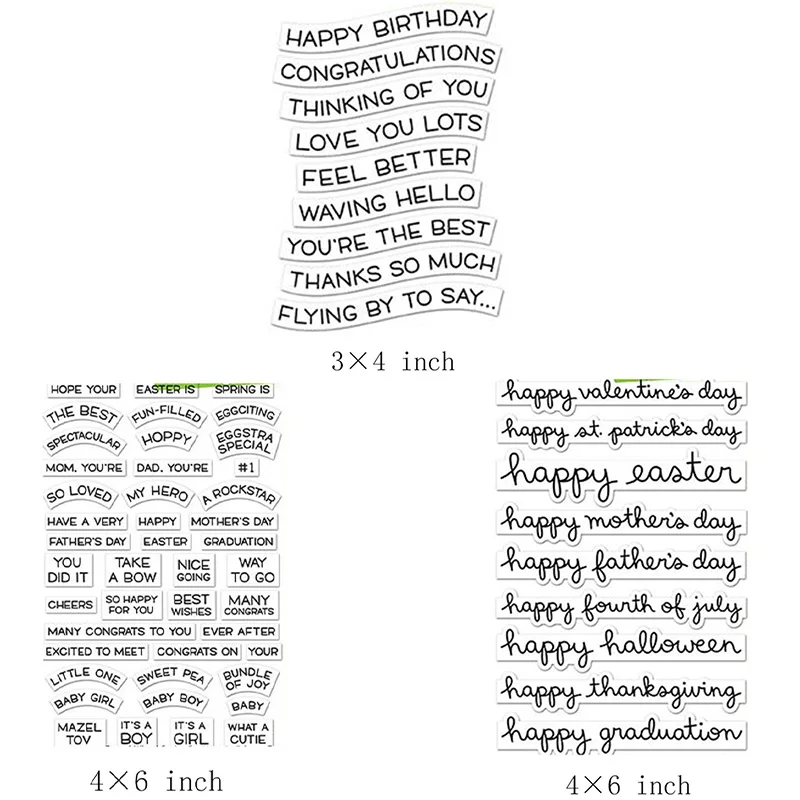 HAPPY BIRTHDAY
CONGRATULATIONS
THINKING OF YOU
LOVE YOU LOTS
FEEL BETTER
WAVING HELLO
YOU'RE THE BEST
THANKS SO MUCH
FLYING BY TO SAY...
3×4 inch
HOPE YOUR EASTER IS SPRING IS
THE BEST FUN-FILLED EGGCITING
SPECTACULAR HOPPY EGGSTRA SPECIAL
MOM, YOU'RE DAD, YOU'RE #1
SO LOVED MY HERO A ROCKSTAR
HAVE A VERY HAPPY MOTHER'S DAY
FATHER'S DAY EASTER GRADUATION
YOU TAKE NICE WAY
DID IT A BOW GOING TO GO
CHEERS SO HAPPY FOR YOU BEST WISHES MANY CONGRATS
MANY CONGRATS TO YOU EVER AFTER
EXCITED TO MEET CONGRATS ON YOUR
LITTLE ONE SWEET PEA BUNDLE OF JOY
BABY GIRL BABY BOY BABY
MAZEL IT'S A IT'S A WHAT A
TOV BOY GIRL CUTIE
4×6 inch
happy valentine's day
happy st. patrick's day
happy easter
happy mother's day
happy father's day
happy fourth of july
happy halloween
happy thanksgiving
happy graduation
4×6 inch